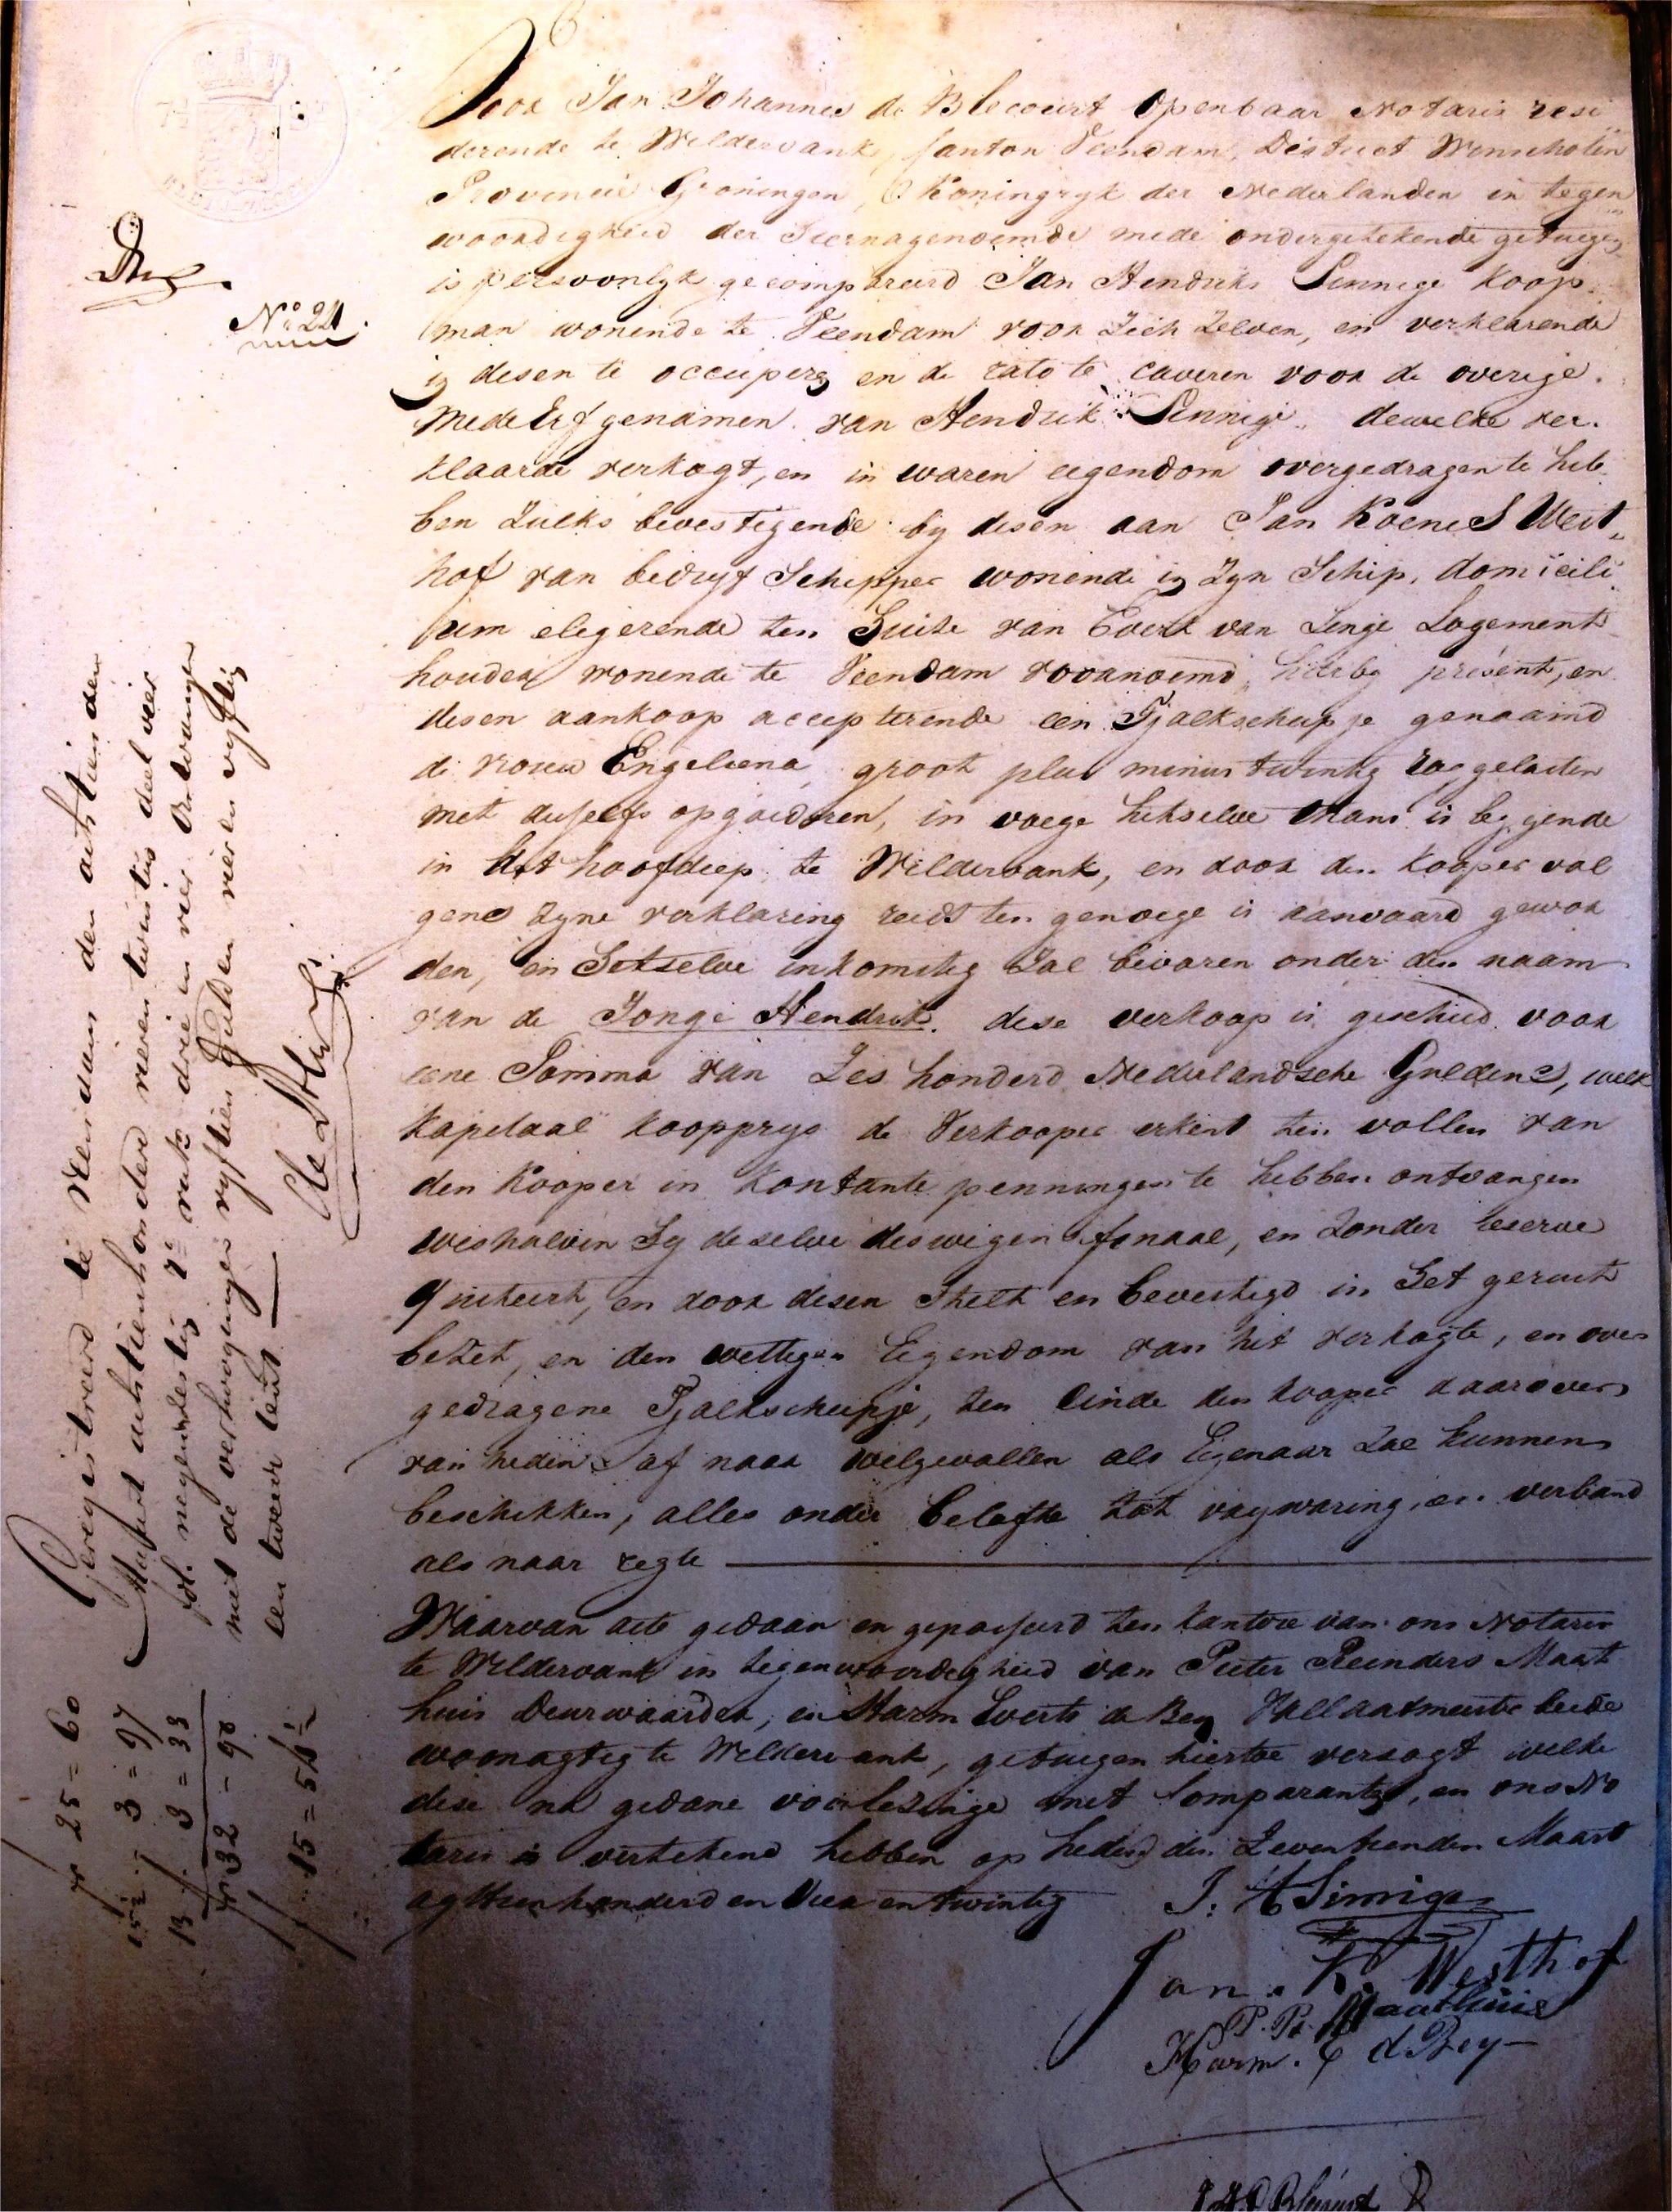 Voor Jan Johannes de Blecourt Openbaar Notaris resi
derende te Wildervank, Canton Veendam, District Winschoten
Provincie Groningen, Koningryk der Nederlanden in tegen
woordigheid der hiernagenoemde mede ondergetekende getuigen
is persoonlyk gecompareerd Jan Hendriks Sinnige Koop
man wonende te Veendam voor Zich Zelven, en verklarende
in desen te occuperen en de rato te caveren voor de overige
Mede Erfgenamen van Hendrik Sinnige, dewelke ver
klaarde verkogt, en in waren eegendom overgedragen te heb
ben Zulks bevestigende by desen aan Jan Koenes West
hof van bedryf Schipper wonende in Zyn Schip, domicili
um elegerende ten Huize van Evert van Linge Logement
houder wonende te Veendam voornoemd, hierby présent, en
desen aankoop accepterende een Tjalkscheepje genaamd
de vrouw Engeliena, groot plus minus twintig roggelasten
met deszelfs opgoederen, in voege hetselve thans is leggende
in het hoofdiep te Wildervank, en door den Kooper vol
gens Zyne verklaring reeds ten genoege is aanvaard gewor
den, en Hetselve inkomstig Zal bevaren onder den naam
van de Jonge Hendrik. dese verkoop is geschied voor
eene Somma van Zes honderd Nederlandsche Guldens, welk
kapitaal koopprys de Verkooper erkent ten vollen van
den Kooper in kontante penningen te hebben ontvangen
weshalven Hy deselve deswegen finaal, en Zonder reserve
quiteert, en door desen Stelt en bevestigd in Het gerust
bezet, en den wettigen Eigendom van het verkogte, en over
gedragene Tjalkscheepje, ten einde den kooper daarover
van heden af naar welgevallen als Eigenaar Zal kunnen
beschikken, alles onder belofte tot vrywaring en verband
als naar regte
Waarvan acte gedaan en gepasseerd ten kantore van ons Notaris
te Wildervank in tegenwoordigheid van Pieter Reinders Maat
huis deurwaarder, en Harm Everts de Bey Vallaatmeester beide
woonagtig te Wildervank, getuigen hiertoe versogt welke
dese na gedane voorlezinge met Comparanten, en ons No
taris vertekend hebben op heden den Zeventienden Maart
agttien honderd en Vier en twintig
J: H Sinnige
Jan. K. Westhof
P. R. Maathuis
Harm. E d Bey
J J D Blécourt
No 24
Geregistreerd te Veendam den achttienden
Maart achttienhonderd vierentwintig deel vier
fol. negenzestig vak drie en vier Ontvangen
met de verhoogingen vyftien Gulden vier en vyftig
een tweede cent
25 = 60
3 = 97
13 3 = 33
32 - 90
15 = 54½